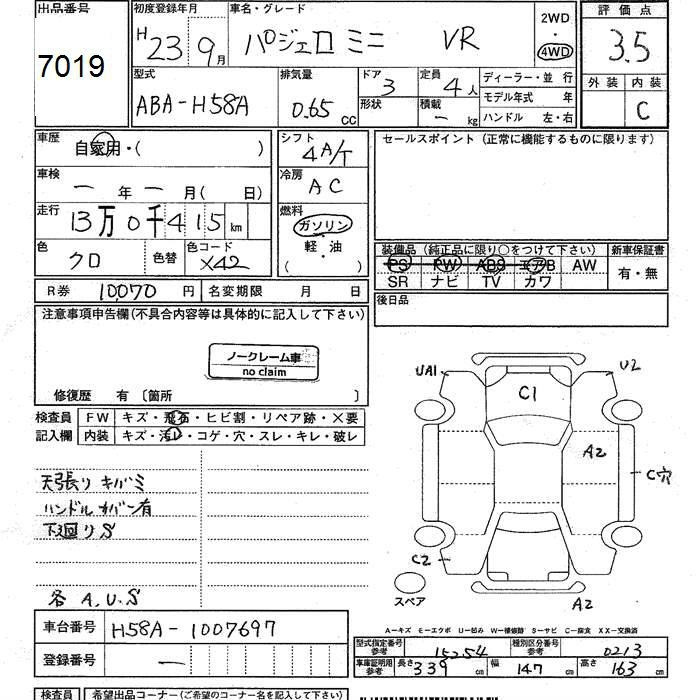 出品番号 初度登録年月 車名・グレード 2WD 4WD 評価点
7019 H 23 9月 パジェロ ミニ VR 3.5
型式 排気量 ドア 定員 ディーラー・並 行 外装 内装
ABA-H58A 0.65 CC 3 4人 モデル年式 年 C
形状 積載 - kg ハンドル 左・右
車歴 自家用・( ) シフト 4A/T セールスポイント (正常に機能するものに限ります)
車検 - 年 - 月( 日) 冷房 AC
走行 13万0千415km 燃料 ガソリン
軽・油
( )
色 クロ 色替 色コード X42
装備品 (純正品に限り○をつけて下さい) 新車保証書
PS PW ABS エアB AW 有・無
SR ナビ TV カワ
R券 10070 円 名変期限 月 日 後日品
注意事項申告欄(不具合内容等は具体的に記入して下さい)
ノークレーム車
no claim
修復歴 有 〔箇所 〕
検査員 FW キズ・飛石・ヒビ割・リペア跡・×要
記入欄 内装 キズ・汚レ・コゲ・穴・スレ・キレ・破レ
天張り キバミ
ハンドルカバー有
下廻りS
各 A.U.S
UA1 U2
C1
A2
C穴
C2
スペア A2
A－キズ M－エクボ U－凹み W－補修跡 S－サビ C－腐食 XX－交換済
車台番号 H58A-1007697
登録番号 -
型式指定番号 参考 15254 種別区分番号 参考 0213
車庫証明用 参考 長さ 339 cm 幅 147 cm 高さ 163 cm
検査員 希望出品コーナー(ご希望のコーナー名を記入して下さい)